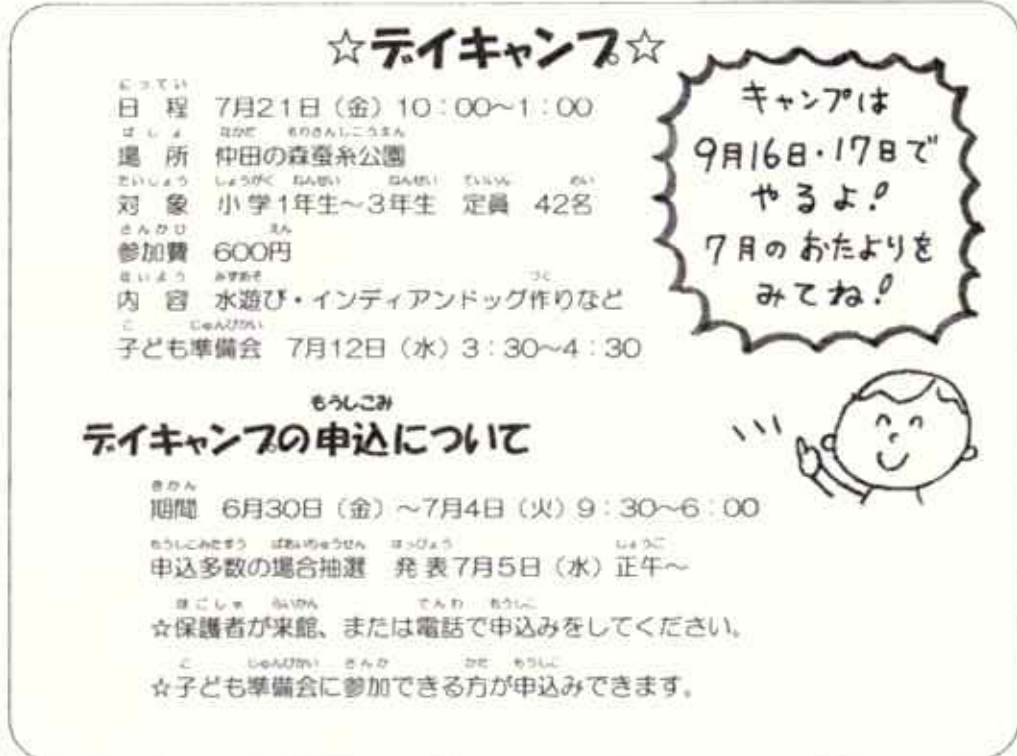 ☆デイキャンプ☆
にってい
日程 7月21日（金）10：00～1：00
ばしょ なかだ もりさんしこうえん
場所 仲田の森蚕糸公園
たいしょう しょうがく ねんせい ねんせい ていいん めい
対象 小学1年生～3年生 定員 42名
さんかひ えん
参加費 600円
ないよう みずあそ づく
内容 水遊び・インディアンドッグ作りなど
こ じゅんびかい
子ども準備会 7月12日（水）3：30～4：30
キャンプは
9月16日・17日で
やるよ！
7月のおたよりを
みてね！
もうしこみ
デイキャンプの申込について
きかん
期間 6月30日（金）～7月4日（火）9：30～6：00
もうしこみたすう ばあいちゅうせん はっぴょう しょうご
申込多数の場合抽選 発表7月5日（水）正午～
ほごしゃ らいかん でんわ もうしこ
☆保護者が来館、または電話で申込みをしてください。
こ じゅんびかい さんか かた もうしこ
☆子ども準備会に参加できる方が申込みできます。